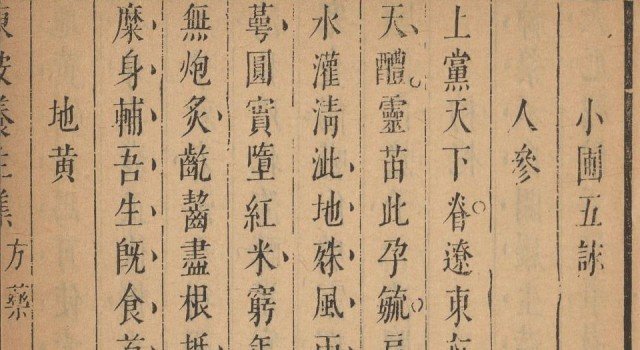 小圃五詠
人參
上黨天下脊遼東
天醴靈苗此孕毓
水灌清泚地殊風雨
蕚圓實墮紅米窮年
無炮炙齕齧盡根柢
糜身輔吾生既食首
地黄
東坡養生集 方藥